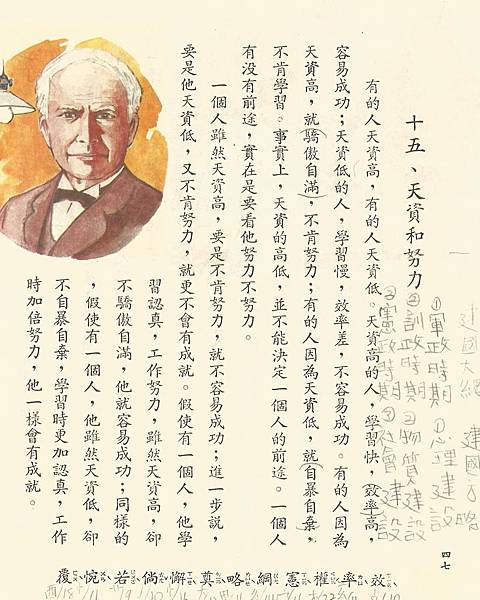 建國大綱 建國方略
①軍政時期 ①心理建設
②訓政時期 ②物質建設
③憲政時期 ③社會建設
十五、天資和努力
有的人天資高，有的人天資低。天資高的人，學習快，效率高，
容易成功；天資低的人，學習慢，效率差，不容易成功。有的人因為
天資高，就驕傲自滿，不肯努力；有的人因為天資低，就自暴自棄，
不肯學習。事實上，天資的高低，並不能決定一個人的前途。一個人
有沒有前途，實在是要看他努力不努力。
一個人雖然天資高，要是不肯努力，就不容易成功；進一步說，
要是他天資低，又不肯努力，就更不會有成就。假使有一個人，他學
習認真，工作努力，雖然天資高，卻
不驕傲自滿，他就容易成功；同樣的
，假使有一個人，他雖然天資低，卻
不自暴自棄，學習時更加認真，工作
時加倍努力，他一樣會有成就。
四七
效率權憲綱略莫懈倘若惋覆